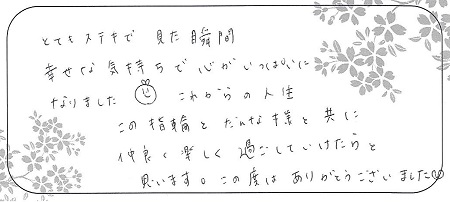 とてもステキで 見た瞬間
幸せな気持ちで心がいっぱいに
なりました これからの人生
この指輪とだんな様と共に
仲良く楽しく過ごしていけたらと
思います。この度はありがとうございました♡